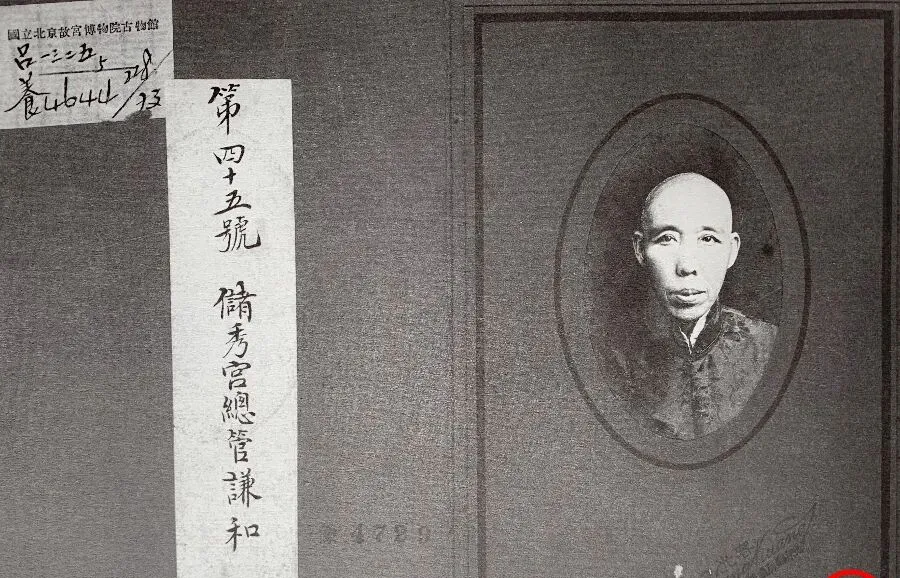 國立北京故宮博物院古物館
呂一三二五 5
養4644 728/93
第四十五號 儲秀宮總管謙和
4729